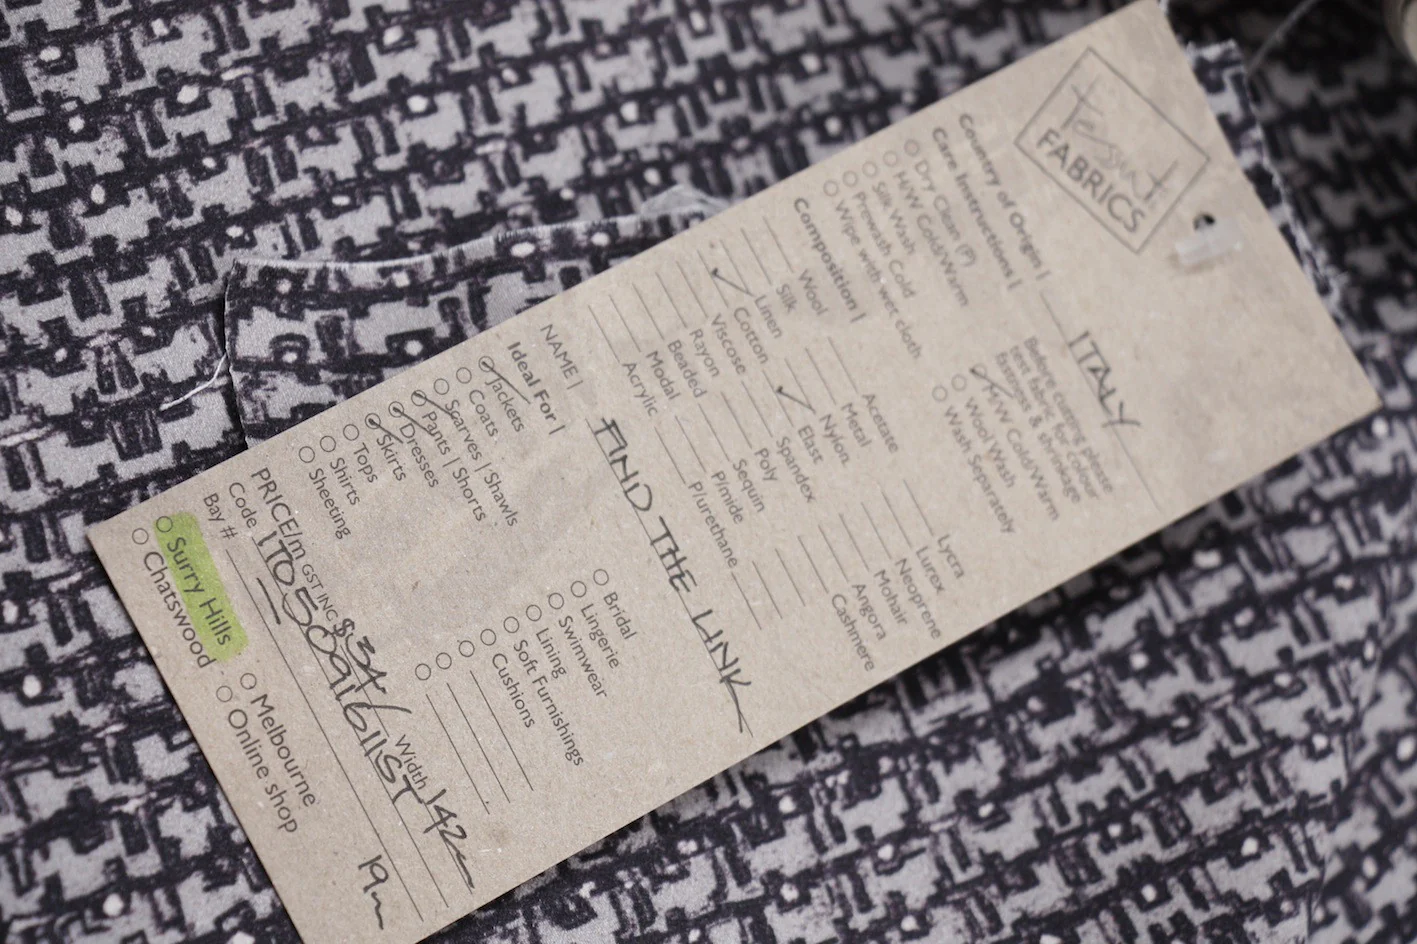 Tessuti
FABRICS
Country of Origin | ITALY
Care Instructions |
Before cutting please
test fabric for colour
fastness & shrinkage
Dry Clean (P)
H/W Cold/Warm
Silk Wash
Prewash Cold
Wipe with wet cloth
H/W Cold/Warm
Wool Wash
Wash Separately
Composition |
Wool
Silk
Linen
Cotton
Viscose
Rayon
Beaded
Modal
Acrylic
Acetate
Metal
Nylon
Elast
Spandex
Poly
Sequin
P/mide
P/urethane
Lycra
Lurex
Neoprene
Mohair
Angora
Cashmere
NAME | FIND THE LINK
Ideal For |
Jackets
Coats
Scarves | Shawls
Pants | Shorts
Dresses
Skirts
Tops
Shirts
Sheeting
Bridal
Lingerie
Swimwear
Lining
Soft Furnishings
Cushions
PRICE/m GST INC $34/ Width 142
Code
Bay #
19m
Surry Hills
Chatswood
Melbourne
Online shop